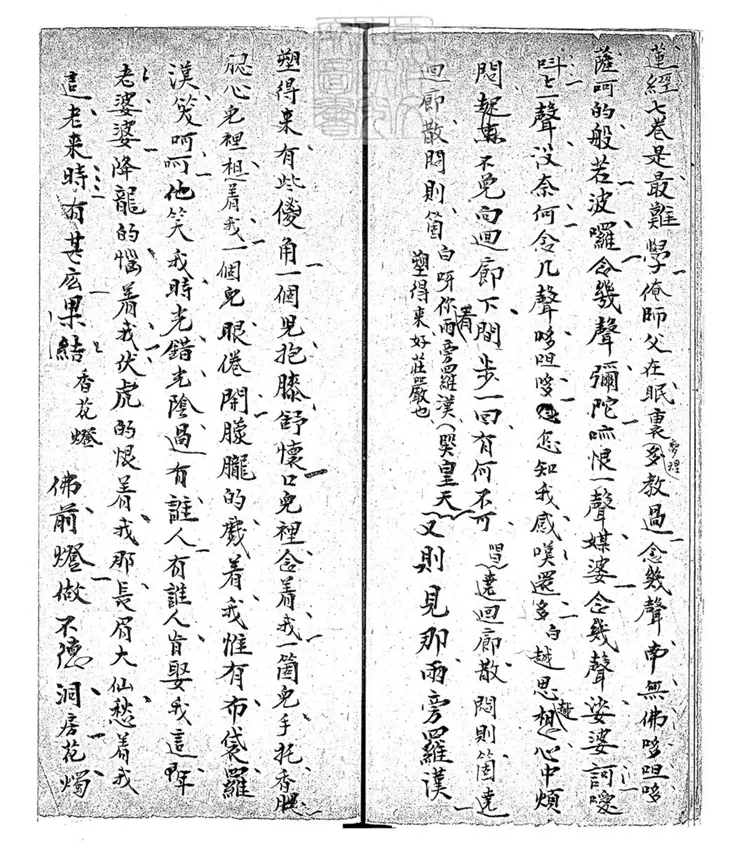 蓮經七卷是最難學俺師父在眠裏夢裡多教過念幾聲南無佛哆呾哆
薩呵的般若波囉念幾聲彌陀恨一聲媒婆念幾聲娑婆訶嗳
叫七一聲没奈何念几聲哆呾哆怎知我感嘆還多白越思越想心中煩
悶起來不免向迴廊下閒步一回有何不可唱遶迴廊散悶則箇遶
迴廊散悶則箇白呀你看兩旁羅漢塑得來好莊嚴也哭皇天又則見那兩旁羅漢
塑得來有些傻角一個兒抱膝舒懷口兒裡念着我一箇兒手托香腮
心兒裡想着我一個兒眼倦開朦朧的戲着我惟有布袋羅
漢笑呵呵他笑我時光錯光陰過有誰人有誰人肯娶我這年
老婆婆降龍的惱着我伏虎的恨着我那長眉大仙愁着我
這老來時有甚庅果結香花燈佛前燈做不德洞房花燭